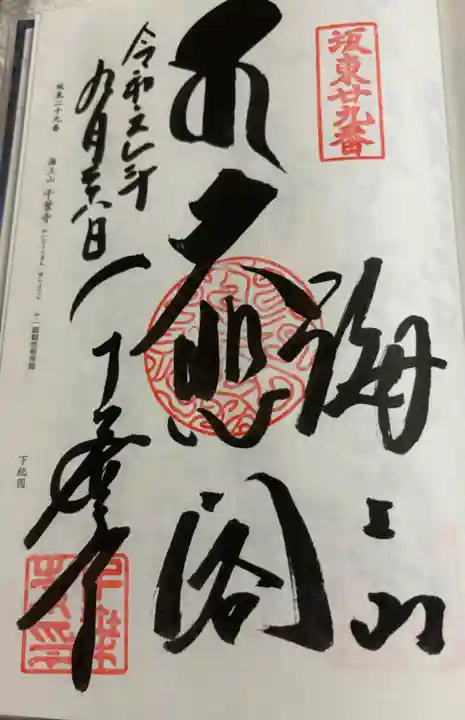 坂東廿九番
海上山
大悲閣
千葉寺
令和元年
九月廿八日
坂東二十九番 海上山 千葉寺 十一面観世音菩薩 下総国